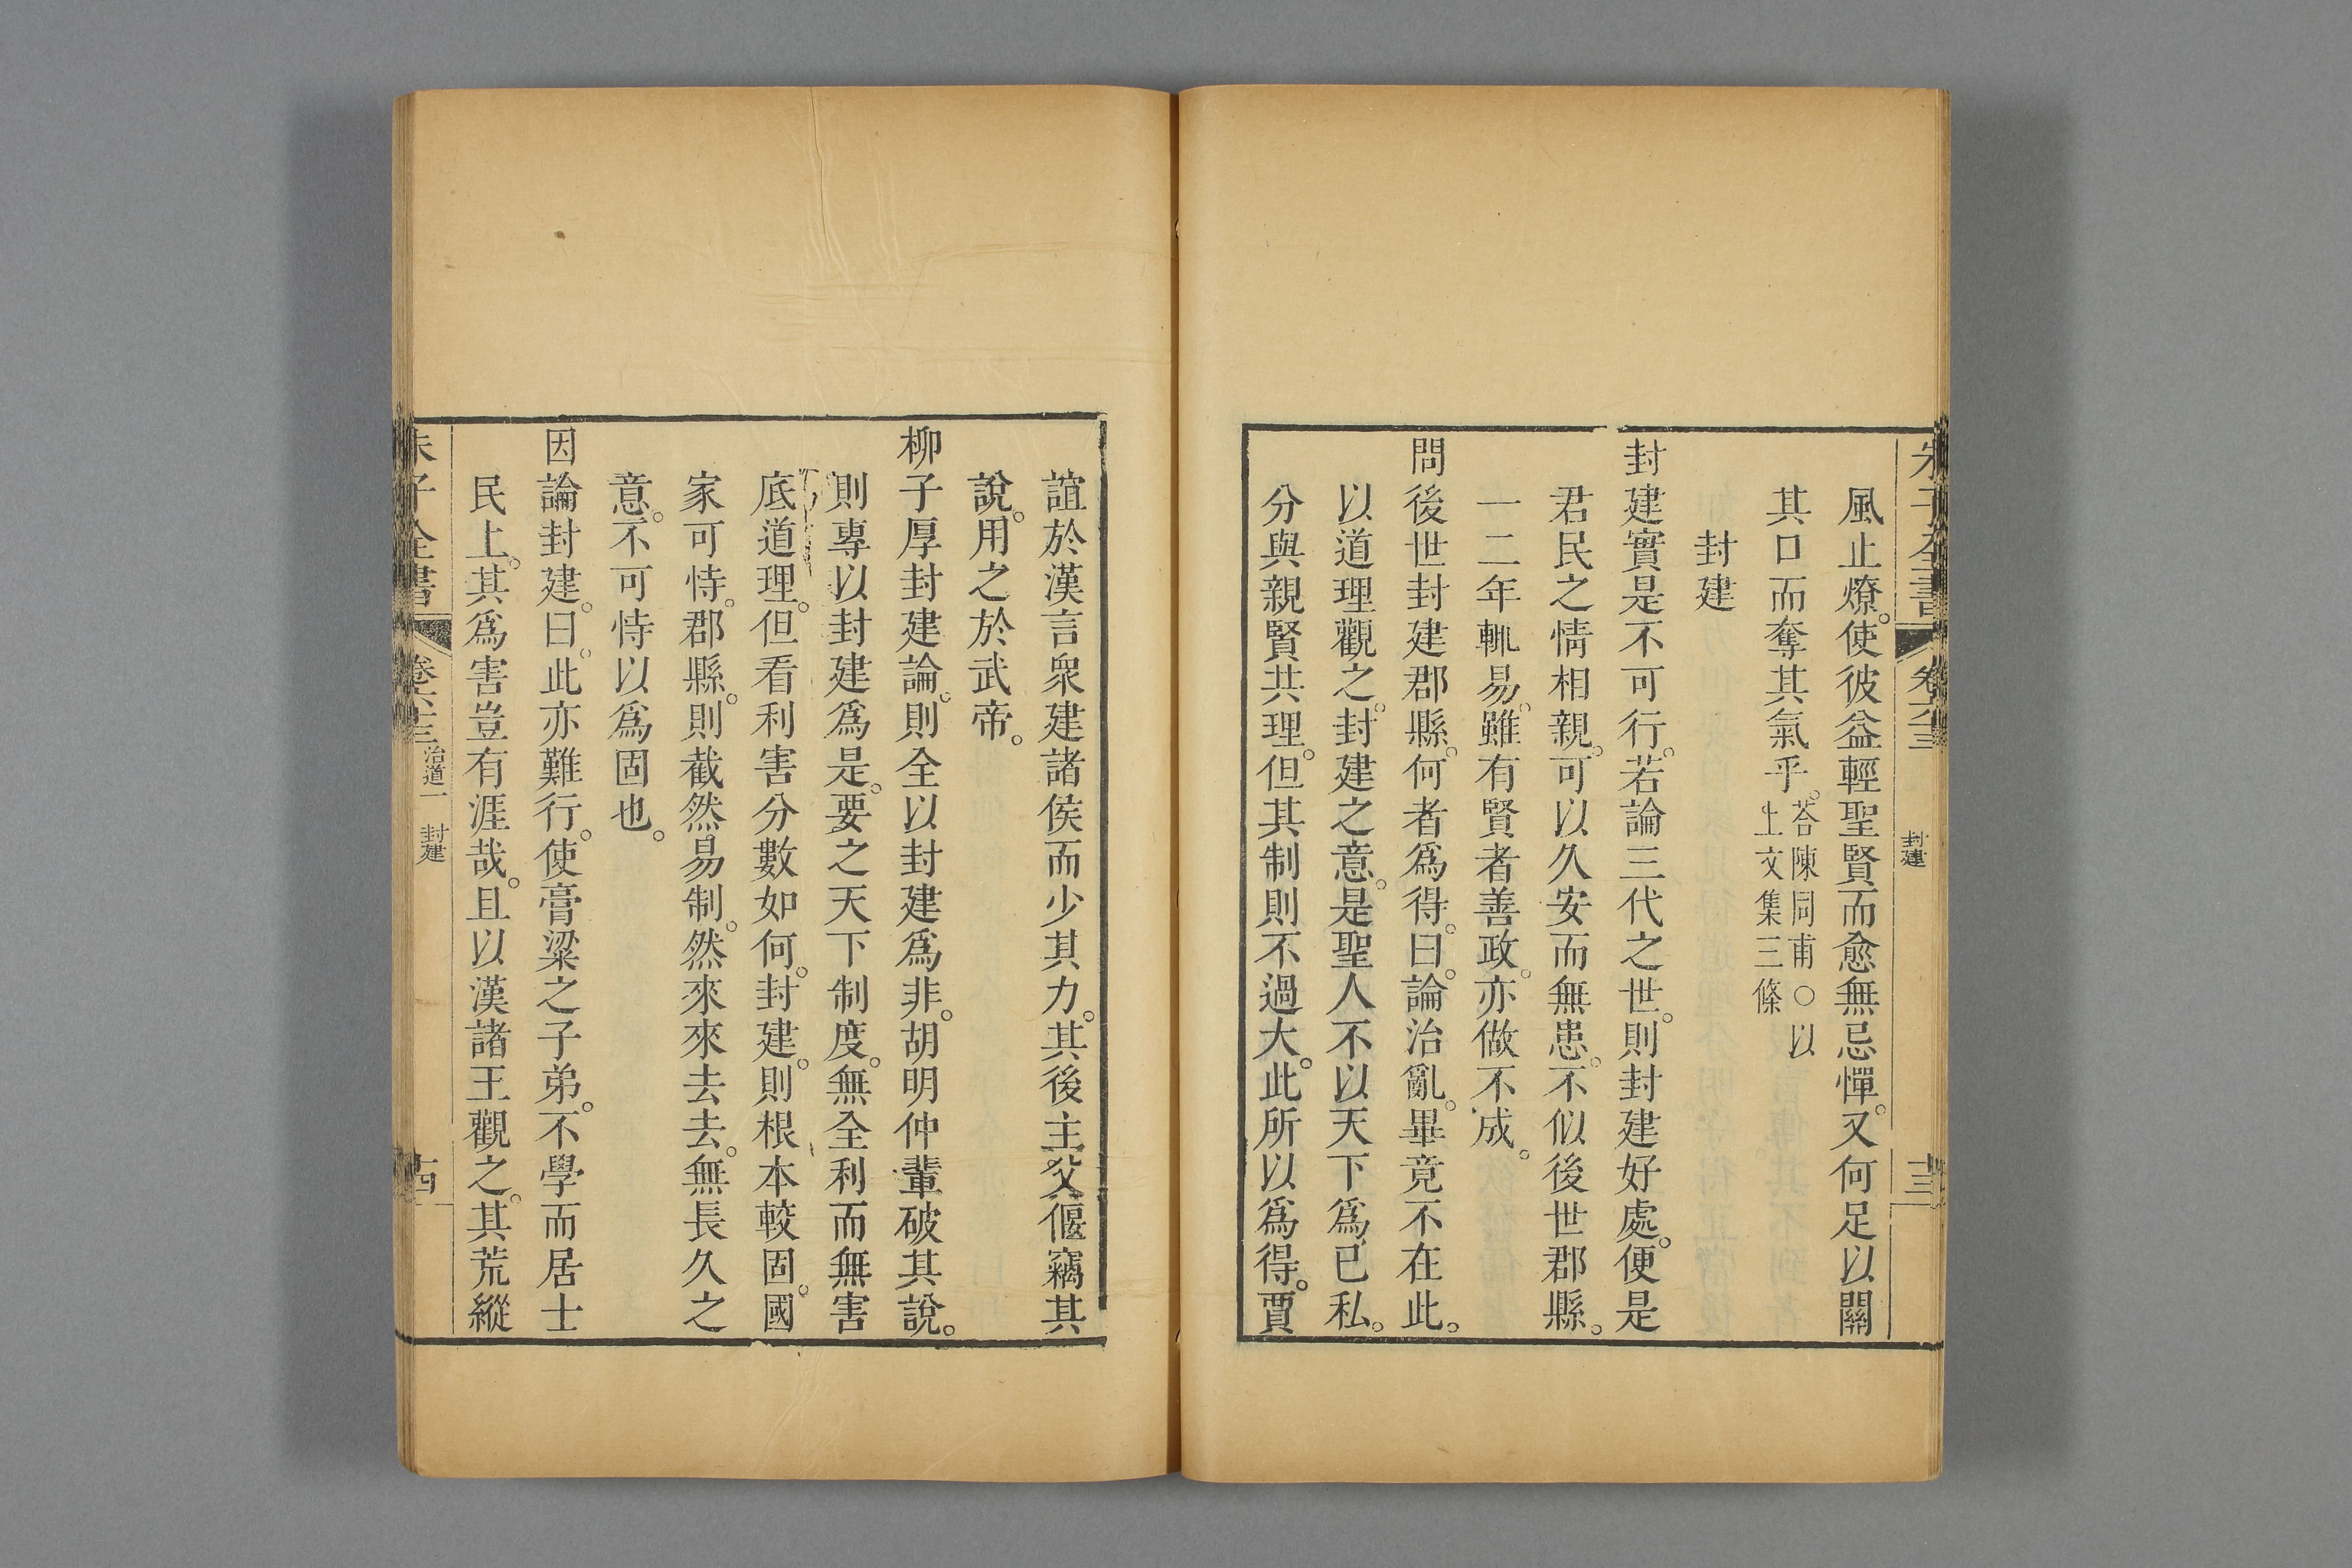 朱子全書 卷六十三 封建 十三
風止燎。使彼益輕聖賢而愈無忌憚。又何足以關
其口而奪其氣乎。荅陳同甫○以
上文集三條
封建
封建實是不可行。若論三代之世。則封建好處。便是
君民之情相親。可以久安而無患。不似後世郡縣。
一二年輒易。雖有賢者善政。亦做不成。
問後世封建郡縣。何者爲得。曰。論治亂。畢竟不在此。
以道理觀之。封建之意。是聖人不以天下爲已私。
分與親賢共理。但其制則不過大。此所以爲得。賈
誼於漢言衆建諸侯而少其力。其後主父偃竊其
說。用之於武帝。
柳子厚封建論。則全以封建爲非。胡明仲輩破其說。
則專以封建爲是。要之天下制度。無全利而無害
底道理。但看利害分數如何。封建。則根本較固。國
家可恃。郡縣。則截然易制。然來來去去。無長久之
意。不可恃以爲固也。
因論封建。曰。此亦難行。使膏粱之子弟。不學而居士
民上。其爲害豈有涯哉。且以漢諸王觀之。其荒縱
朱子全書 卷六十三 治道一 封建 十四